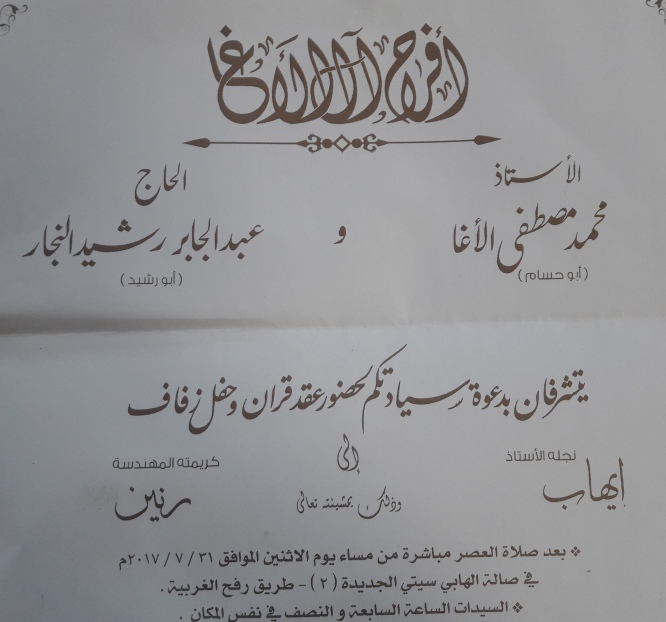 أفراح آل الأغا
الأستاذ
محمد مصطفى الأغا
(أبو حسام)
و
الحاج
عبدالجابر رشيد النجار
(أبو رشيد)
يتشرفان بدعوة سيادتكم لحضور عقد قران وحفل زفاف
نجله الأستاذ
إيهاب
إلى
كريمته المهندسة
رنين
وذلك بمشيئته تعالى
❖ بعد صلاة العصر مباشرة من مساء يوم الاثنين الموافق ٣١ / ٧ / ٢٠١٧م
في صالة الهابي سيتي الجديدة (٢) - طريق رفح الغربية .
❖ السيدات الساعة السابعة و النصف في نفس المكان .